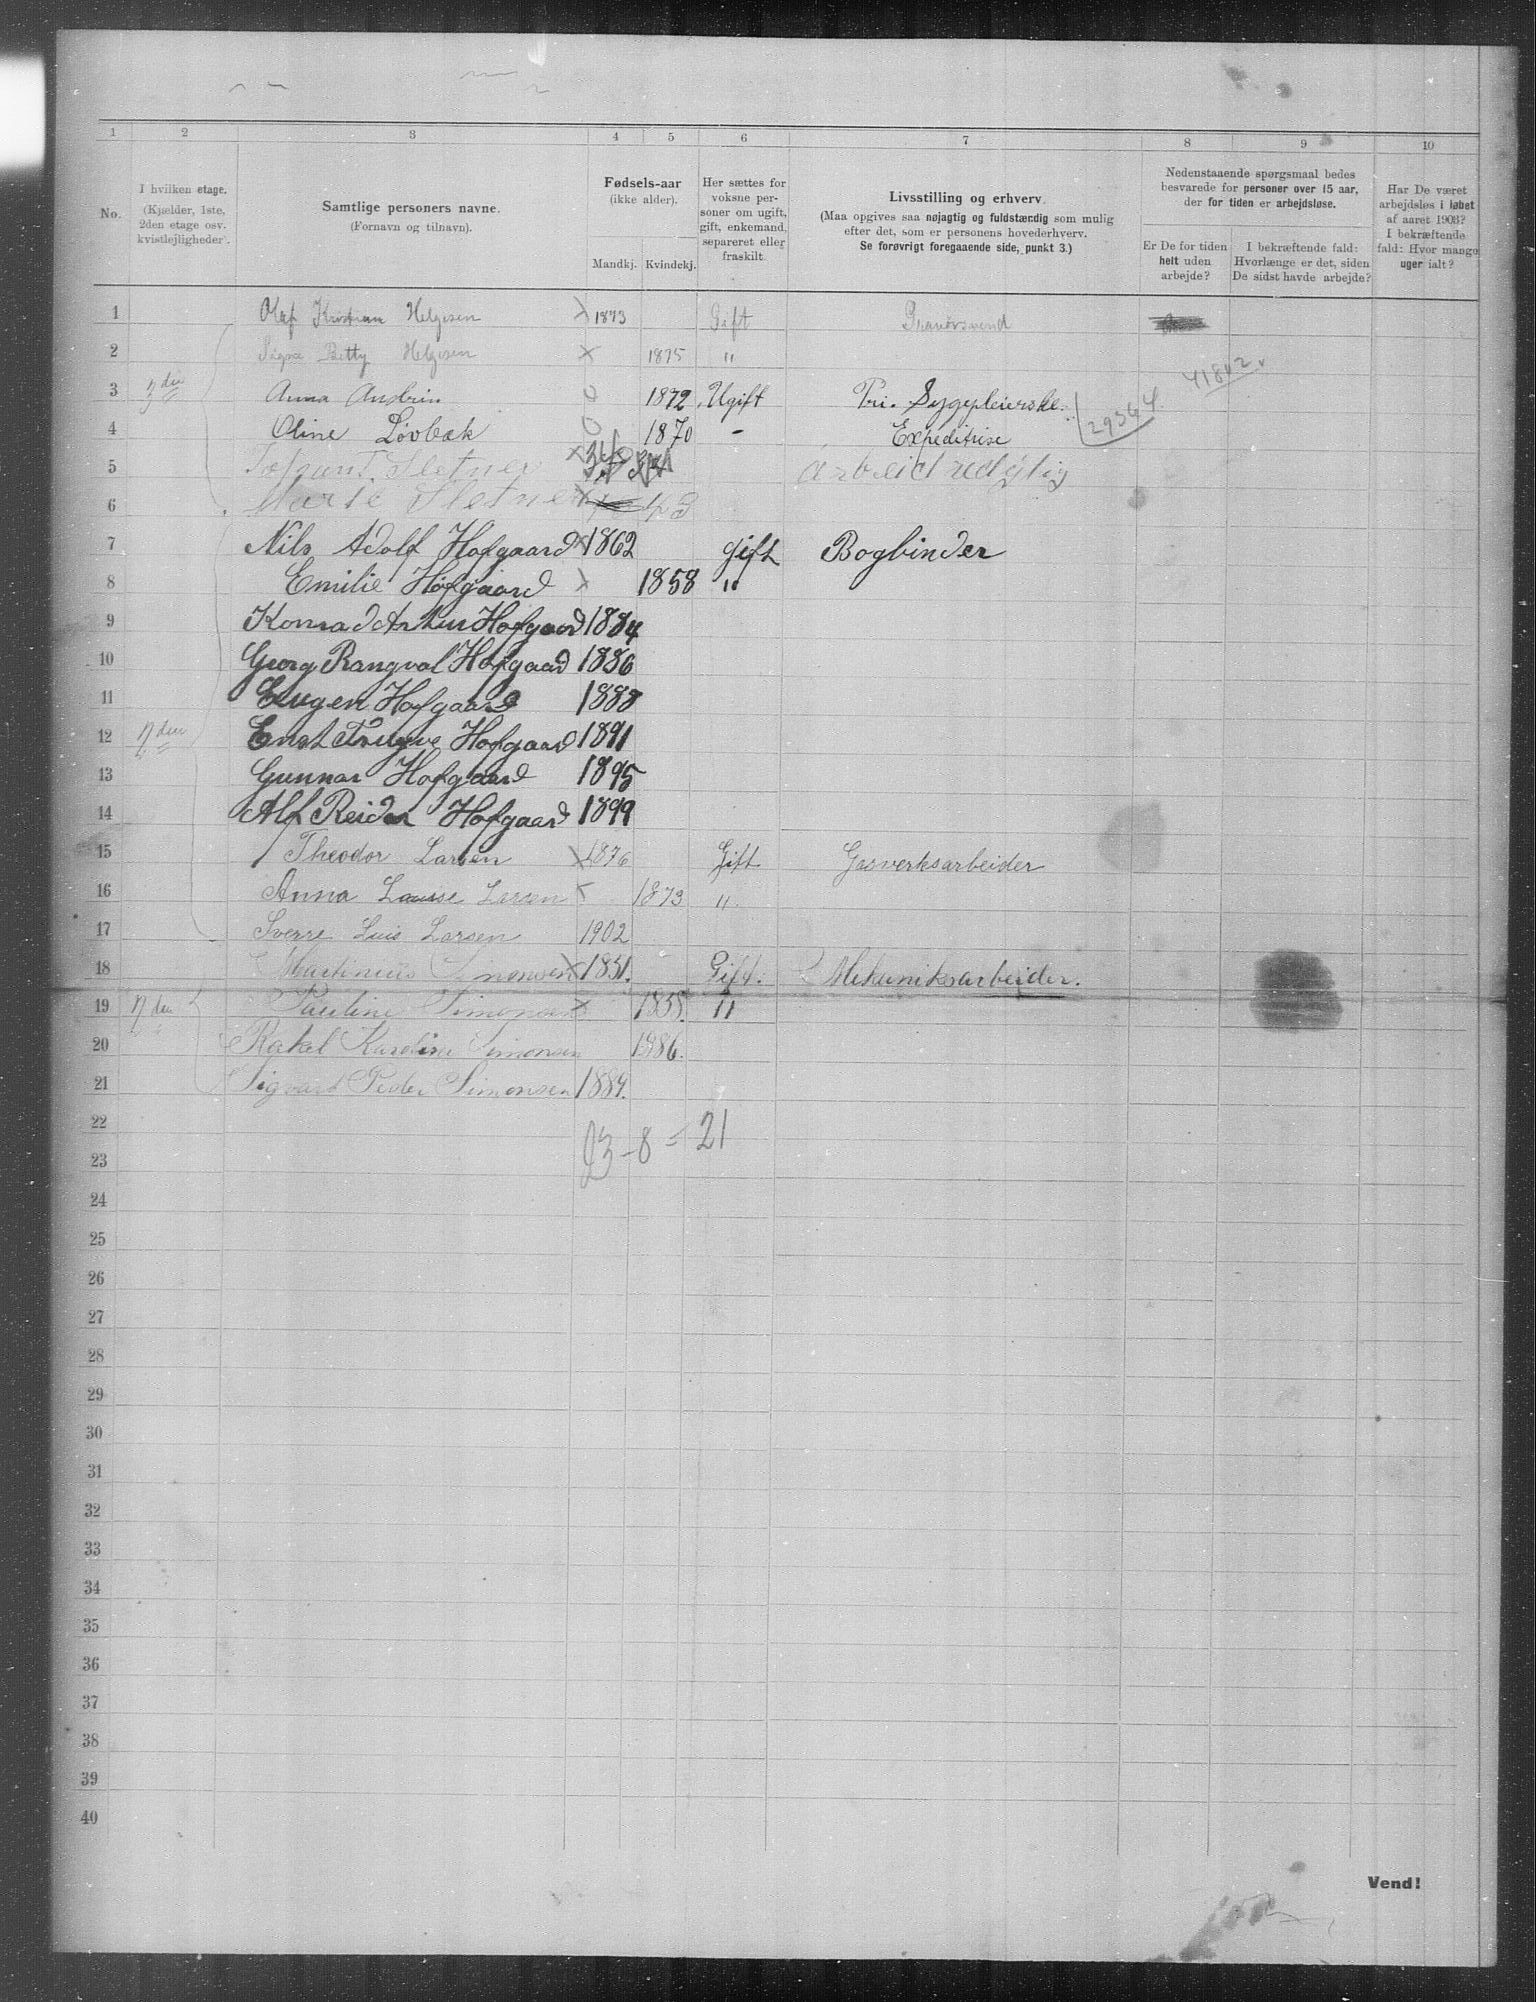 1 2 3 4 5 6 7 8 9 10
No.
I hvilken etage.
(Kjælder, 1ste,
2den etage osv.
kvistlejligheder).
Samtlige personers navne.
(Fornavn og tilnavn).
Fødsels-aar
(ikke alder).
Mandkj. Kvindekj.
Her sættes for
voksne per-
soner om ugift,
gift, enkemand,
separeret eller
fraskilt.
Livsstilling og erhverv.
(Maa opgives saa nøjagtig og fuldstændig som mulig
efter det, som er personens hovederhverv.
Se forøvrigt foregaaende side, punkt 3.)
Nedenstaaende spørgsmaal bedes
besvarede for personer over 15 aar,
der for tiden er arbejdsløse.
Er De for tiden
helt uden
arbejde?
I bekræftende fald:
Hvorlænge er det, siden
De sidst havde arbejde?
Har De været
arbejdsløs i løbet
af aaret 1903?
I bekræftende
fald: Hvor mange
uger ialt?
1 Olaf Kristian Helgesen × 1873 Gift
2 Signe Betty Helgesen × 1875 "
41812
3 Anna 0 1872 Ugift Pri. Sygepleierske
29364
4 Oline Løvbæk 0 1870 - Expeditrise
5 Sletner ×
6 Marte Sletner × 43
7 Nils Adolf Hofgaard × 1862 gift Bogbinder
8 Emilie Hofgaard × 1858 "
9 Konrad Artur Hofgaard 1884
10 Georg Rangval Hofgaard 1886
11 Eugen Hofgaard 1888
12 Enst Trugve Hofgaard 1891
13 Gunnar Hofgaard 1895
14 Alf Reidar Hofgaard 1899
15 Theodor Larsen × 1876 Gift Gasverksarbeider
16 Anna Larsen × 1873 "
17 Sverre Luis Larsen 1902
18 Martinius Simonsen × 1851. Gift. Mekaniksarbeider.
19 Pauline Simonsen × 1858. "
20 Rakel Karoline Simonsen 1886.
21 Sigvart Peder Simonsen 1889.
22
23 - 8 = 21
23
24
25
26
27
28
29
30
31
32
33
34
35
36
37
38
39
40
Vend!